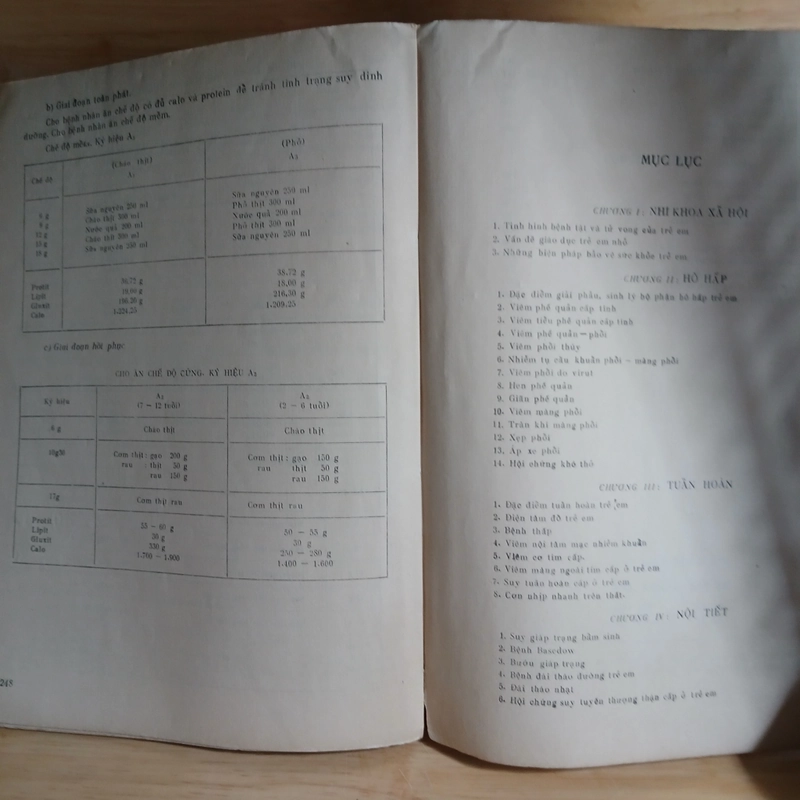 b) Giai đoạn toàn phát.
Cho bệnh nhân ăn chế độ có đủ calo và protein để tránh tình trạng suy dinh
dưỡng. Cho bệnh nhân ăn chế độ mềm.
Chế độ mềm. Ký hiệu A₂
Chế độ
(Cháo thịt)
(Phở)
A₂
6 g
Sữa nguyên 250 ml
Sữa nguyên 250 ml
9 g
Cháo thịt 300 ml
Phở thịt 300 ml
12 g
Nước quả 200 ml
Nước quả 200 ml
15 g
Cháo thịt 300 ml
Phở thịt 300 ml
Sữa nguyên 250 ml
Sữa nguyên 250 ml
Protit
38.72 g
Lipit
18.00 g
Gluxit
216.30 g
Calo
1.224.25
1.209.25
c) Giai đoạn hồi phục
CHO ĂN CHẾ ĐỘ CỨNG. KÝ HIỆU A₃
Ký hiệu
A₃
(7 — 12 tuổi)
A₃
(2 — 6 tuổi)
Cháo thịt
Cháo thịt
10g30
Cơm thịt: gạo 200 g
Cơm thịt: gạo 150 g
rau : thịt 50 g
rau thịt 50 g
rau 150 g
rau 150 g
17g
Cơm thịt rau
Cơm thịt rau
Protit
55 — 60 g
50 — 55 g
Lipit
30 g
Gluxit
330 g
250 — 280 g
Calo
1.700 — 1.900
1.400 — 1.600
248
MỤC LỤC
CHƯƠNG I: NHI KHOA XÃ HỘI
1. Tình hình bệnh tật và tử vong của trẻ em
2. Vấn đề giáo dục trẻ em nhỏ
3. Những biện pháp bảo vệ sức khỏe trẻ em
CHƯƠNG II: HÔ HẤP
1. Đặc điểm giải phẫu, sinh lý bộ phận hô hấp trẻ em
2. Viêm phế quản cấp tính
3. Viêm tiểu phế quản cấp tính
4. Viêm phế quản — phổi
5. Viêm phổi thùy
6. Nhiễm tụ cầu khuẩn phổi - màng phổi
7. Viêm phổi do virut
8. Hen phế quản
9. Giãn phế quản
10. Viêm màng phổi
11. Tràn khí màng phổi
12. Xẹp phổi
13. Áp xe phổi
14. Hội chứng khó thở
CHƯƠNG III: TUẦN HOÀN
1. Đặc điểm tuần hoàn trẻ em
2. Điện tâm đồ trẻ em
3. Bệnh thấp
4. Viêm nội tâm mạc nhiễm khuẩn
5. Viêm cơ tim cấp.
6. Viêm màng ngoài tim cấp ở trẻ em
7. Suy tuần hoàn cấp ở trẻ em
8. Cơn nhịp nhanh trên thất.
CHƯƠNG IV: NỘI TIẾT
1. Suy giáp trạng bẩm sinh
2. Bệnh Basedow
3. Bướu giáp trạng
4. Bệnh đái tháo đường trẻ em
5. Đái tháo nhạt
6. Hội chứng suy tuyến thượng thận cấp ở trẻ em